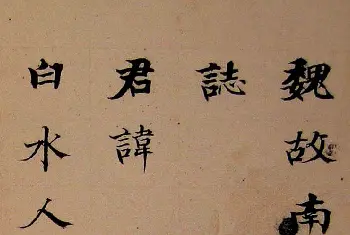 魏故南
誌
君諱
白水人